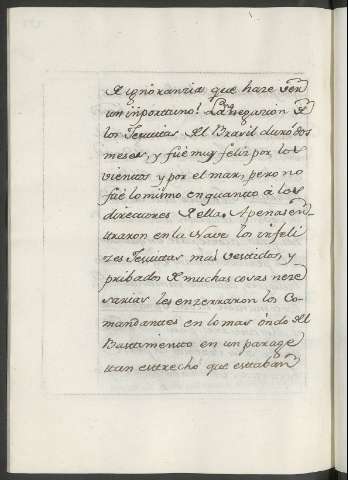 de ignoranzia que haze ser
un inporttuno! La nabegazion de
los Jesuitas del Brasil duró dos
meses, y fué muy feliz por los
vientos y por el mar, pero no
fué lo mismo en quanto a los
directtores de ella. Apenas en-
ttraron en la Nave los infeli
zes Jesuitas mal vestidos, y
pribados de muchas cosas neze
sarias les enzerraron los Co-
mandantes en lo mas óndo del
Bastimento en un parage
ttan esttrecho que esttaban